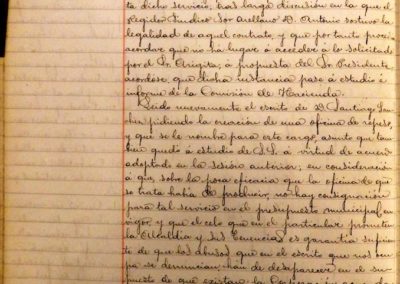 ta dicho servicio, tras larga discusión en la que el
Regidor Síndico Sor Arellano D. Antonio sostuvo la
legalidad de aquel contrato, y que por tanto
acordar que no ha lugar á acceder á lo solicitado
por el Sr. Origita; á propuesta del Sr. Presidente
acordose que dicha instancia pase á estudio é
informe de la Comisión de Hacienda.
Leido nuevamente el escrito de D. Santiago
pidiendo la creación de una oficina de repeso,
y que se le nombre para este cargo, asunto que
quedó á estudio de S.S. á virtud de acuerdo
adoptado en la sesión anterior; en consideración
á que, sobre la poca eficacia que la oficina de que
se trata había de producir, no hay consignación
para tal servicio en el presupuesto municipal en
vigor, y que el celo que en el particular prometen
la Alcaldía y sus Tenencias es garantía suficien
te de que los abusos que en el escrito que nos ocu
pa se denuncian, han de desaparecer en el su
puesto de que existan, la